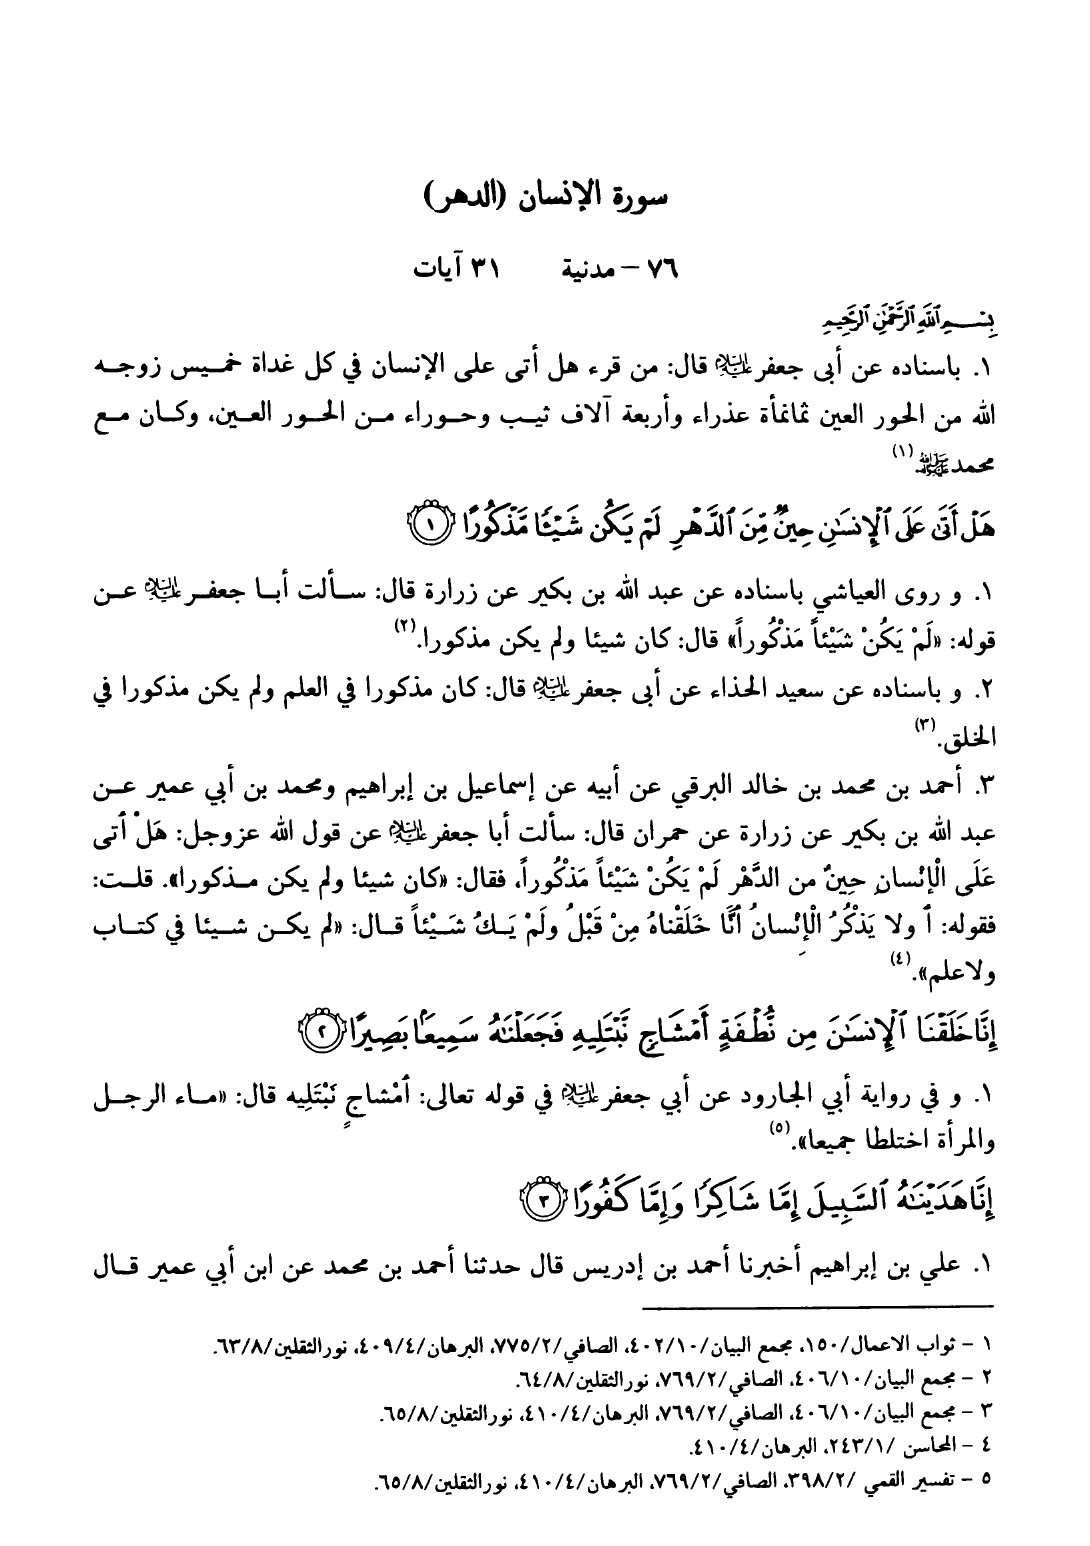 سورة الإنسان (الدهر)
٧٦ – مدنية ٣١ آيات
بِسْمِ ٱللَّهِ ٱلرَّحْمَٰنِ ٱلرَّحِيمِ
١. باسناده عن أبى جعفر عليه السلام قال: من قرء هل أتى على الإنسان في كل غداة خميس زوجه
الله من الحور العين ثمانمأة عذراء وأربعة آلاف ثيب وحوراء من الحور العين، وكان مع
محمد ﷺ (١)
هَلْ أَتَىٰ عَلَى ٱلْإِنسَٰنِ حِينٌ مِّنَ ٱلدَّهْرِ لَمْ يَكُن شَيْـًٔا مَّذْكُورًا ١
١. و روى العياشي باسناده عن عبد الله بن بكير عن زرارة قال: سألت أبا جعفر عليه السلام عن
قوله: «لَمْ يَكُنْ شَيْئاً مَذْكُوراً» قال: كان شيئا ولم يكن مذكورا.(٢)
٢. و باسناده عن سعيد الحذاء عن أبى جعفر عليه السلام قال: كان مذكورا في العلم ولم يكن مذكورا في
الخلق.(٣)
٣. أحمد بن محمد بن خالد البرقي عن أبيه عن إسماعيل بن إبراهيم ومحمد بن أبي عمير عن
عبد الله بن بكير عن زرارة عن حمران قال: سألت أبا جعفر عليه السلام عن قول الله عزوجل: هَلْ أَتى
عَلَى الْإِنْسانِ حِينٌ من الدَّهْرِ لَمْ يَكُنْ شَيْئاً مَذْكُوراً، فقال: «كان شيئا ولم يكن مذكورا». قلت:
فقوله: أ ولا يَذْكُرُ الْإِنْسانُ أَنَّا خَلَقْناهُ مِنْ قَبْلُ ولَمْ يَكُ شَيْئاً قال: «لم يكن شيئا في كتاب
ولاعلم».(٤)
إِنَّا خَلَقْنَا ٱلْإِنسَٰنَ مِن نُّطْفَةٍ أَمْشَاجٍ نَّبْتَلِيهِ فَجَعَلْنَٰهُ سَمِيعًۢا بَصِيرًا ٢
١. و في رواية أبي الجارود عن أبي جعفر عليه السلام في قوله تعالى: أَمْشاجٍ نَبْتَلِيه قال: «ماء الرجل
والمرأة اختلطا جميعا».(٥)
إِنَّا هَدَيْنَٰهُ ٱلسَّبِيلَ إِمَّا شَاكِرًا وَإِمَّا كَفُورًا ٣
١. علي بن إبراهيم أخبرنا أحمد بن إدريس قال حدثنا أحمد بن محمد عن ابن أبي عمير قال
١ – ثواب الاعمال/١٥٠، مجمع البيان/٤٠٢/١٠، الصافي/٧٧٥/٢، البرهان/٤٠٩/٤، نورالثقلين/٦٣/٨.
٢ – مجمع البيان/٤٠٦/١٠، الصافي/٧٦٩/٢، نورالثقلين/٦٤/٨.
٣ – مجمع البيان/٤٠٦/١٠، الصافي/٧٦٩/٢، البرهان/٤١٠/٤، نورالثقلين/٦٥/٨.
٤ – المحاسن /٢٤٣/١، البرهان/٤١٠/٤.
٥ – تفسير القمي /٣٩٨/٢، الصافي/٧٦٩/٢، البرهان/٤١٠/٤، نورالثقلين/٦٥/٨.